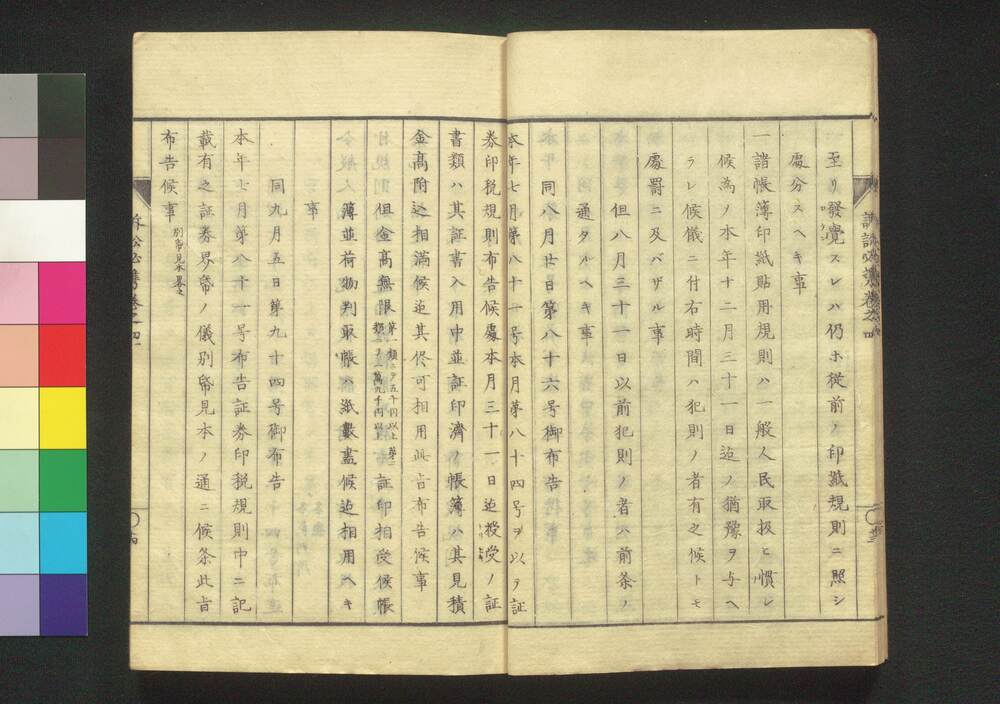 至リ發覺スレハ仍ホ従前ノ印紙規則ニ照シ
處分スヘキ事
一諸帳簿印紙貼用規則ハ一般人民取扱ヒ慣レ
候為ノ本年十二月三十一日迠ノ猶豫ヲ与ヘ
ラレ候儀ニ付右時間ハ犯則ノ者有之候トモ
處罰ニ及バザル事
但八月三十一日以前犯則ノ者ハ前条ノ
通タルヘキ事
同八月廿日第八十六号御布告
本年七月第八十一号本月第八十四号ヲ以テ証
券印税規則布告候處本月三十一日迠授受ノ証
書類ハ其証書入用中並証印濟ノ帳簿ハ其見積
金髙附込相満候迠其侭可相用此旨布告候事
但金髙無限第一類ニテ五千円以上第二類ニテ一萬九千円以上証印相受候帳
簿並荷物判取帳ハ紙數盡候迠相用ヘキ
事
同九月五日第九十四号御布告
本年七月第八十一号布告証券印税規則中ニ記
載有之証券界帋ノ儀別帋見本ノ通ニ候条此旨
布告候事 別帋見本畧之